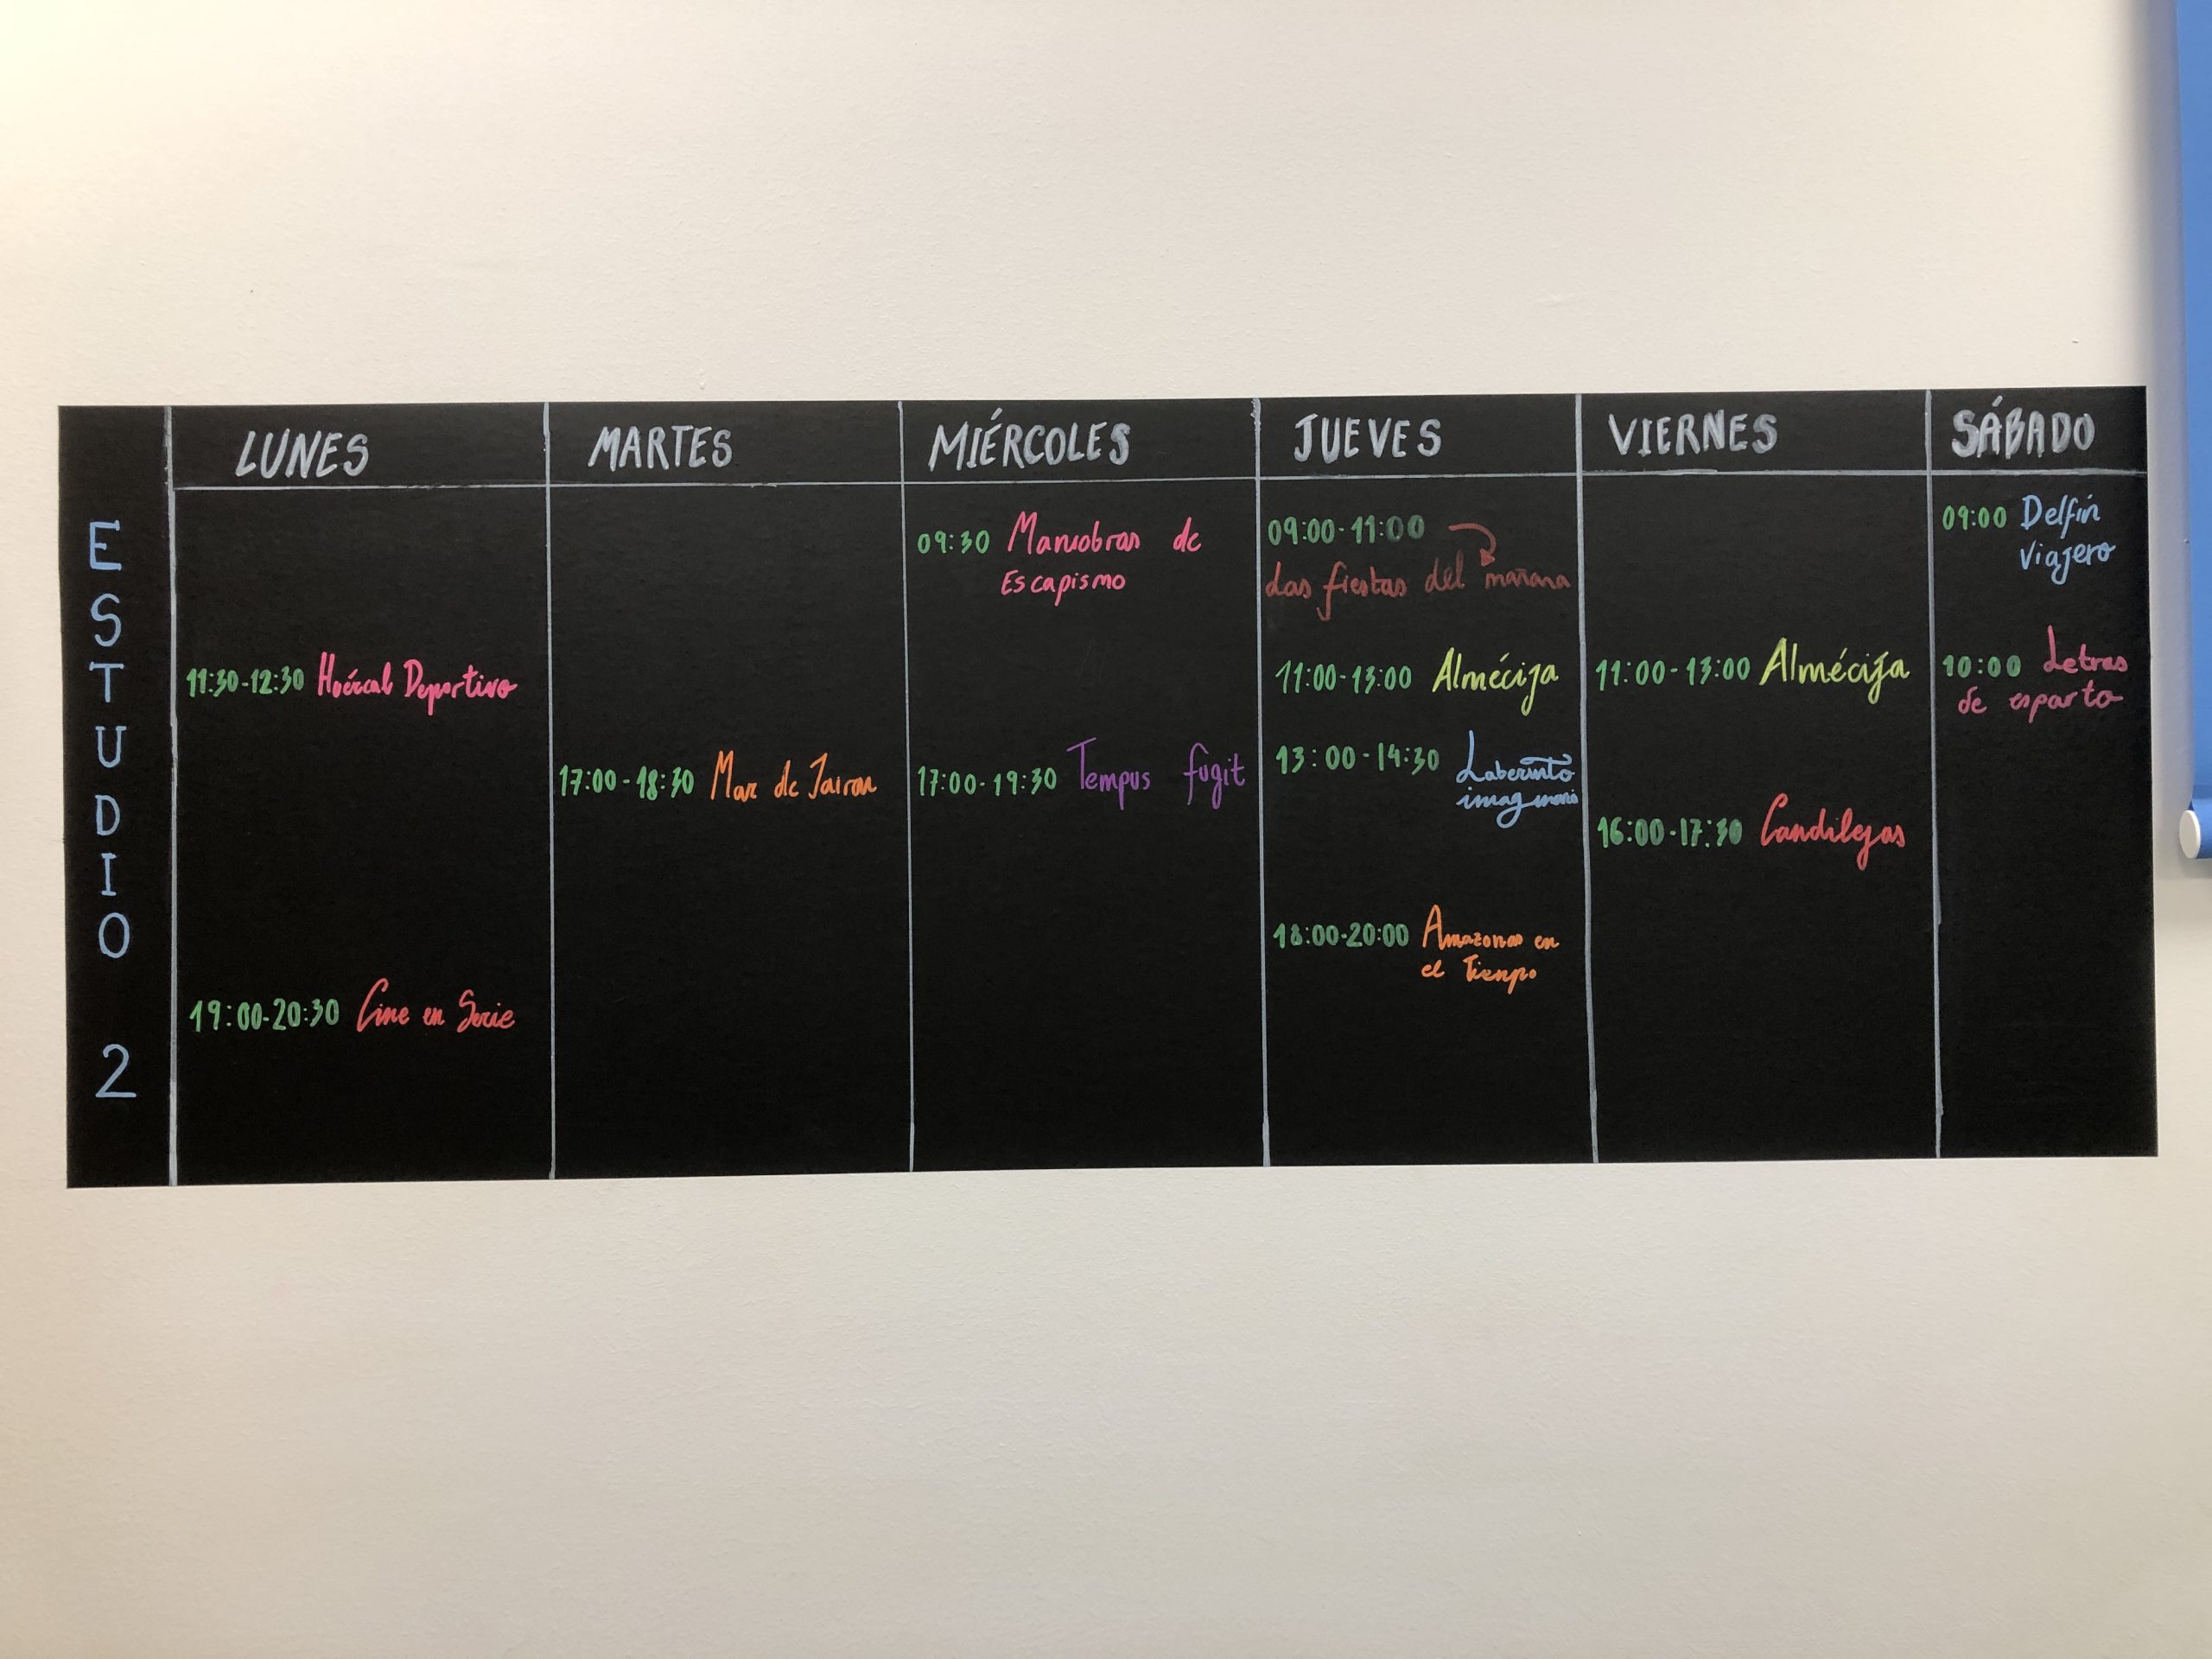 ESTUDIO 2
LUNES
11:30-12:30 Huércal Deportivo
19:00-20:30 Cine en Serie
MARTES
17:00-18:30 Mar de Jairan
MIÉRCOLES
09:30 Maniobras de
Escapismo
17:00-19:30 Tempus fugit
JUEVES
09:00-11:00
Las fiestas del mañana
11:00-13:00 Almécija
13:00-14:30 Laberinto
imaginario
18:00-20:00 Amazonas en
el Tiempo
VIERNES
11:00-13:00 Almécija
16:00-17:30 Candilejas
SÁBADO
09:00 Delfín
Viajero
10:00 Letras
de esparto